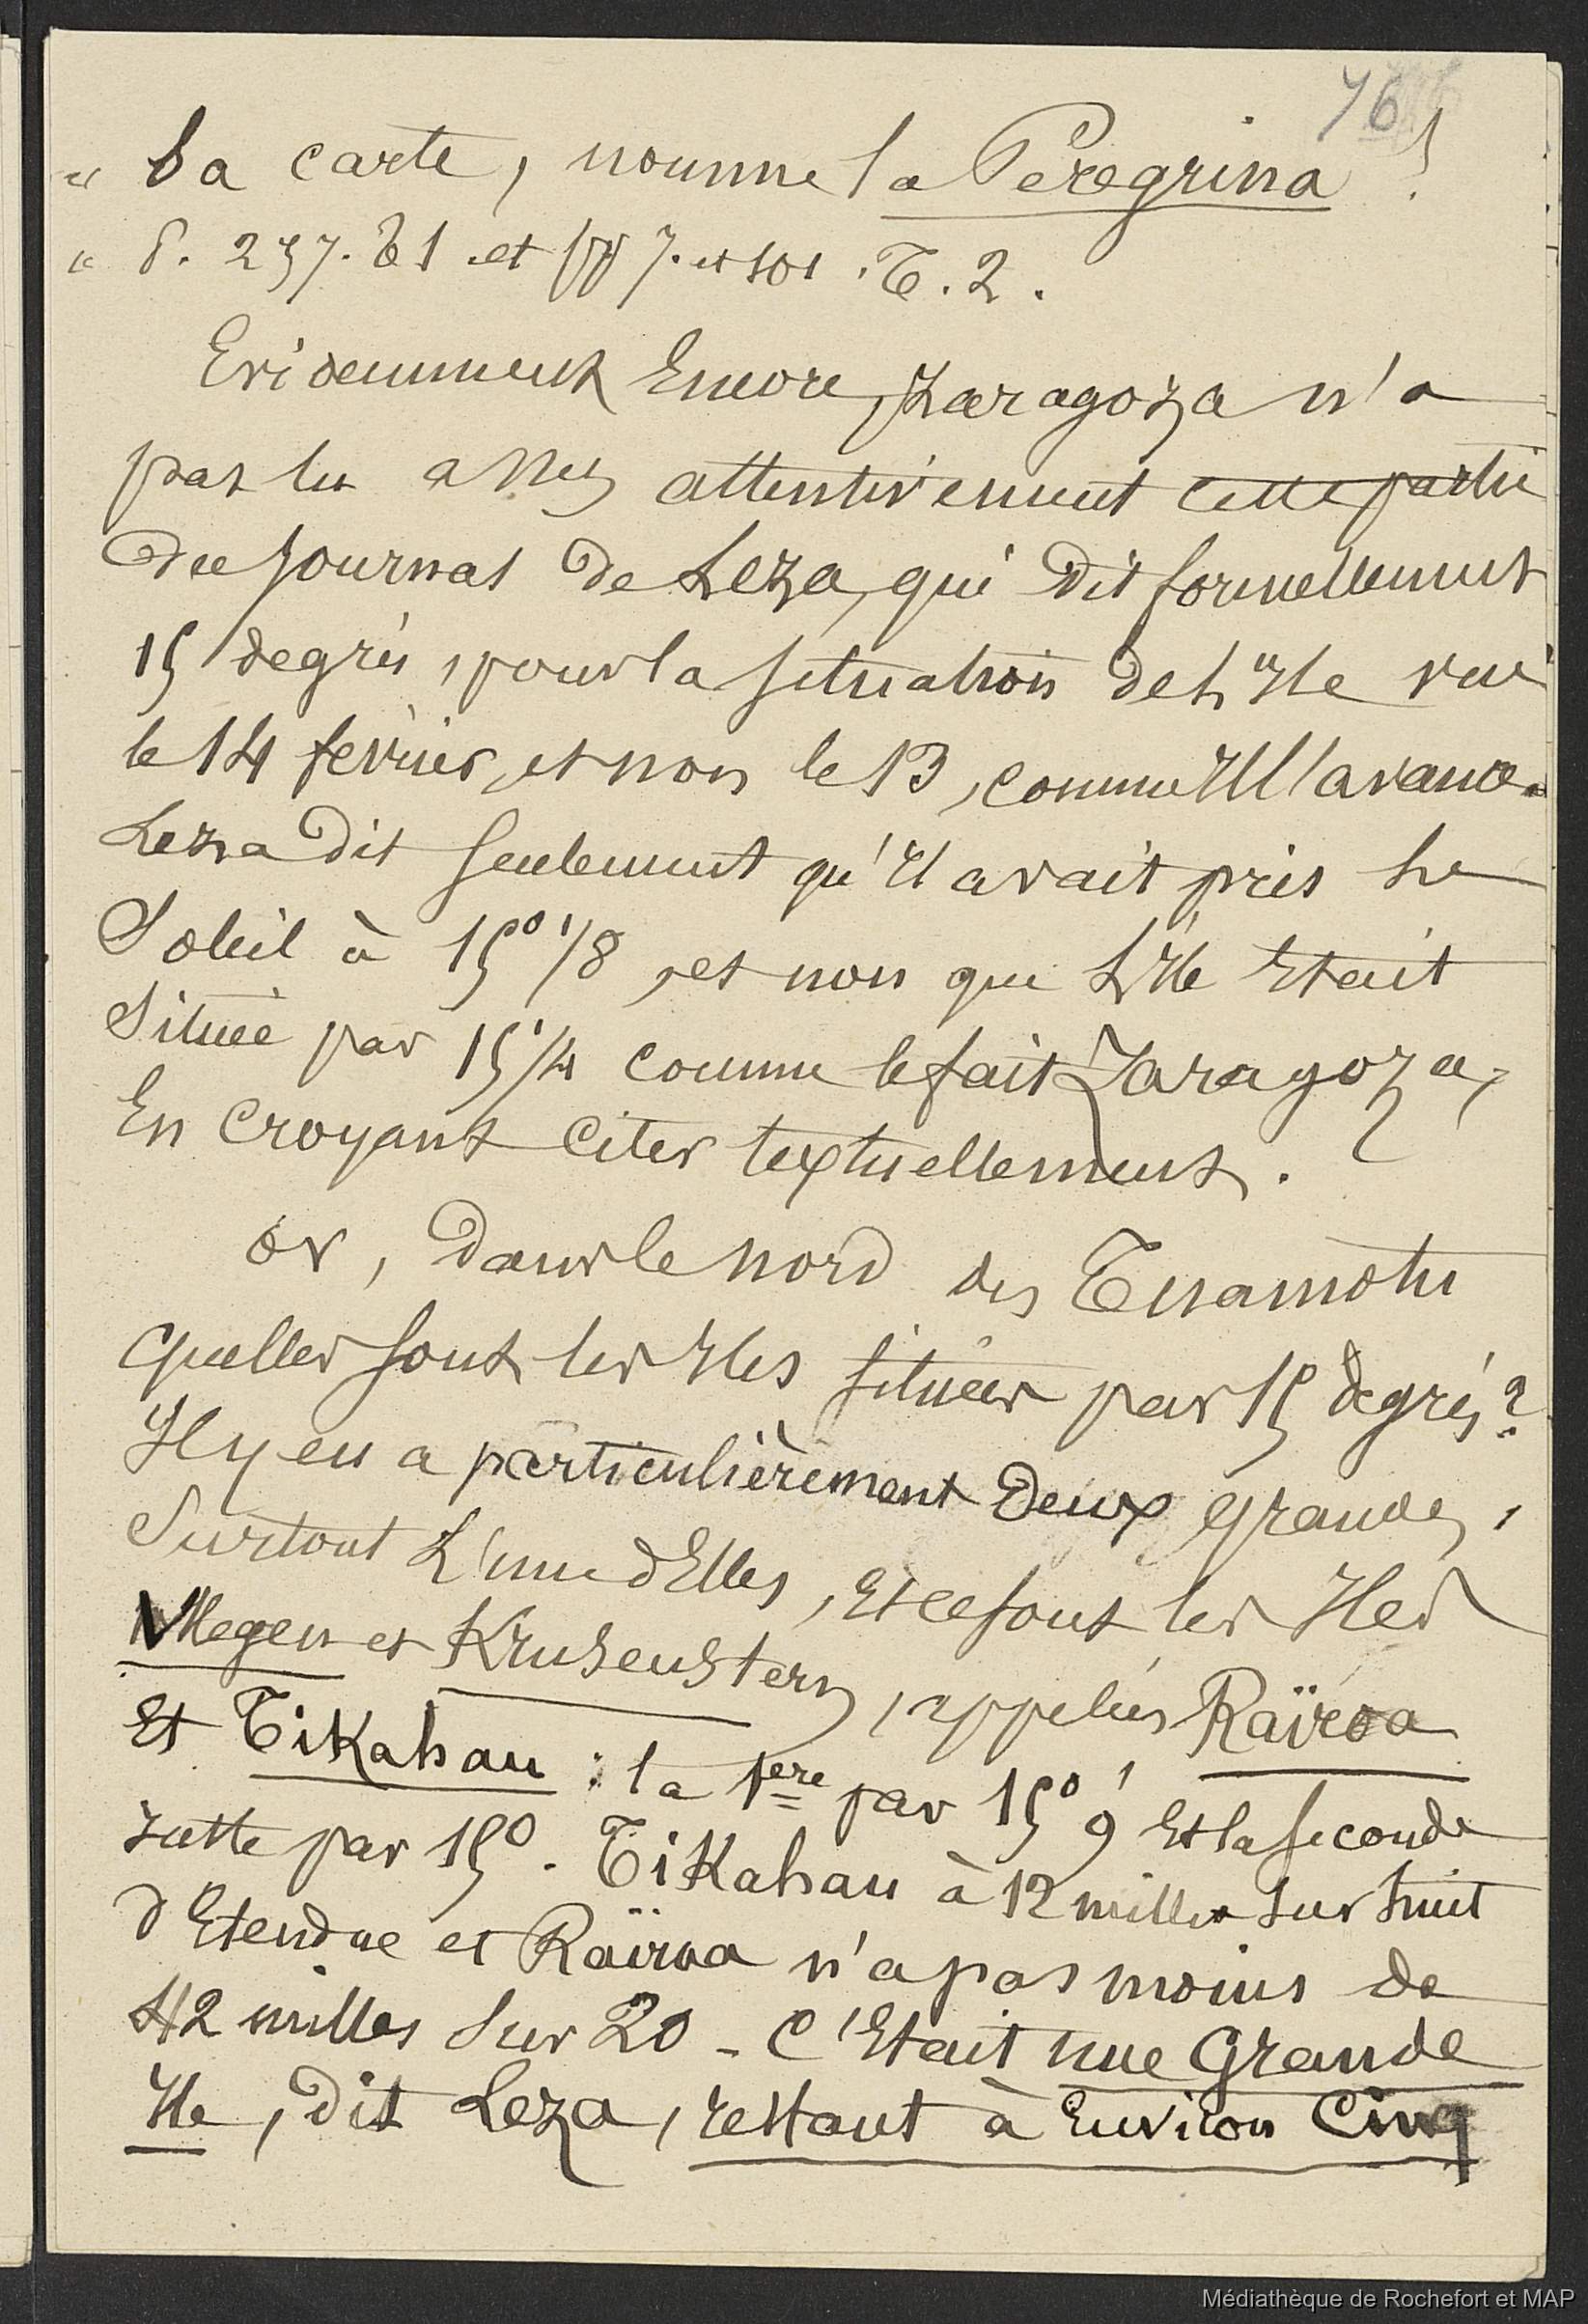 76
" La carte, nomme la Peregrina !
" P. 237. T 1 et pp 7. et 101. T. 2.
Evidemment Encore, Zaragoza n'a
pas lu assez attentivement cette partie
du Journal de Leza, qui dit formellement
15 degrés, pour la situation de L'Ile vue
le 14 février, et non le 13, comme Il l'avance.
Leza dit seulement qu'Il avait pris Le
Soleil à 15° 1/8, et non que L'Ile Etait
Située par 15 1/4 comme le fait Zaragoza,
En Croyant Citer textuellement.
Or, Dans le nord des Tuamotu
Quelles sont les Iles situées par 15 degrés ?
Il y en a particulièrement Deux grandes,
Surtout L'une d'Elles, Et ce sont les Iles
Vliegen et Krusenstern, appelées Raïroa
Et Tikahau : la 1ère par 15° 9' Et la seconde
Juste par 15°. Tikahau à 12 milles sur huit
d'Etendue et Raïroa n'a pas moins de
42 milles Sur 20 - C'Etait une Grande
Ile, Dit Leza, restant à Environ Cinq
Médiathèque de Rochefort et MAP